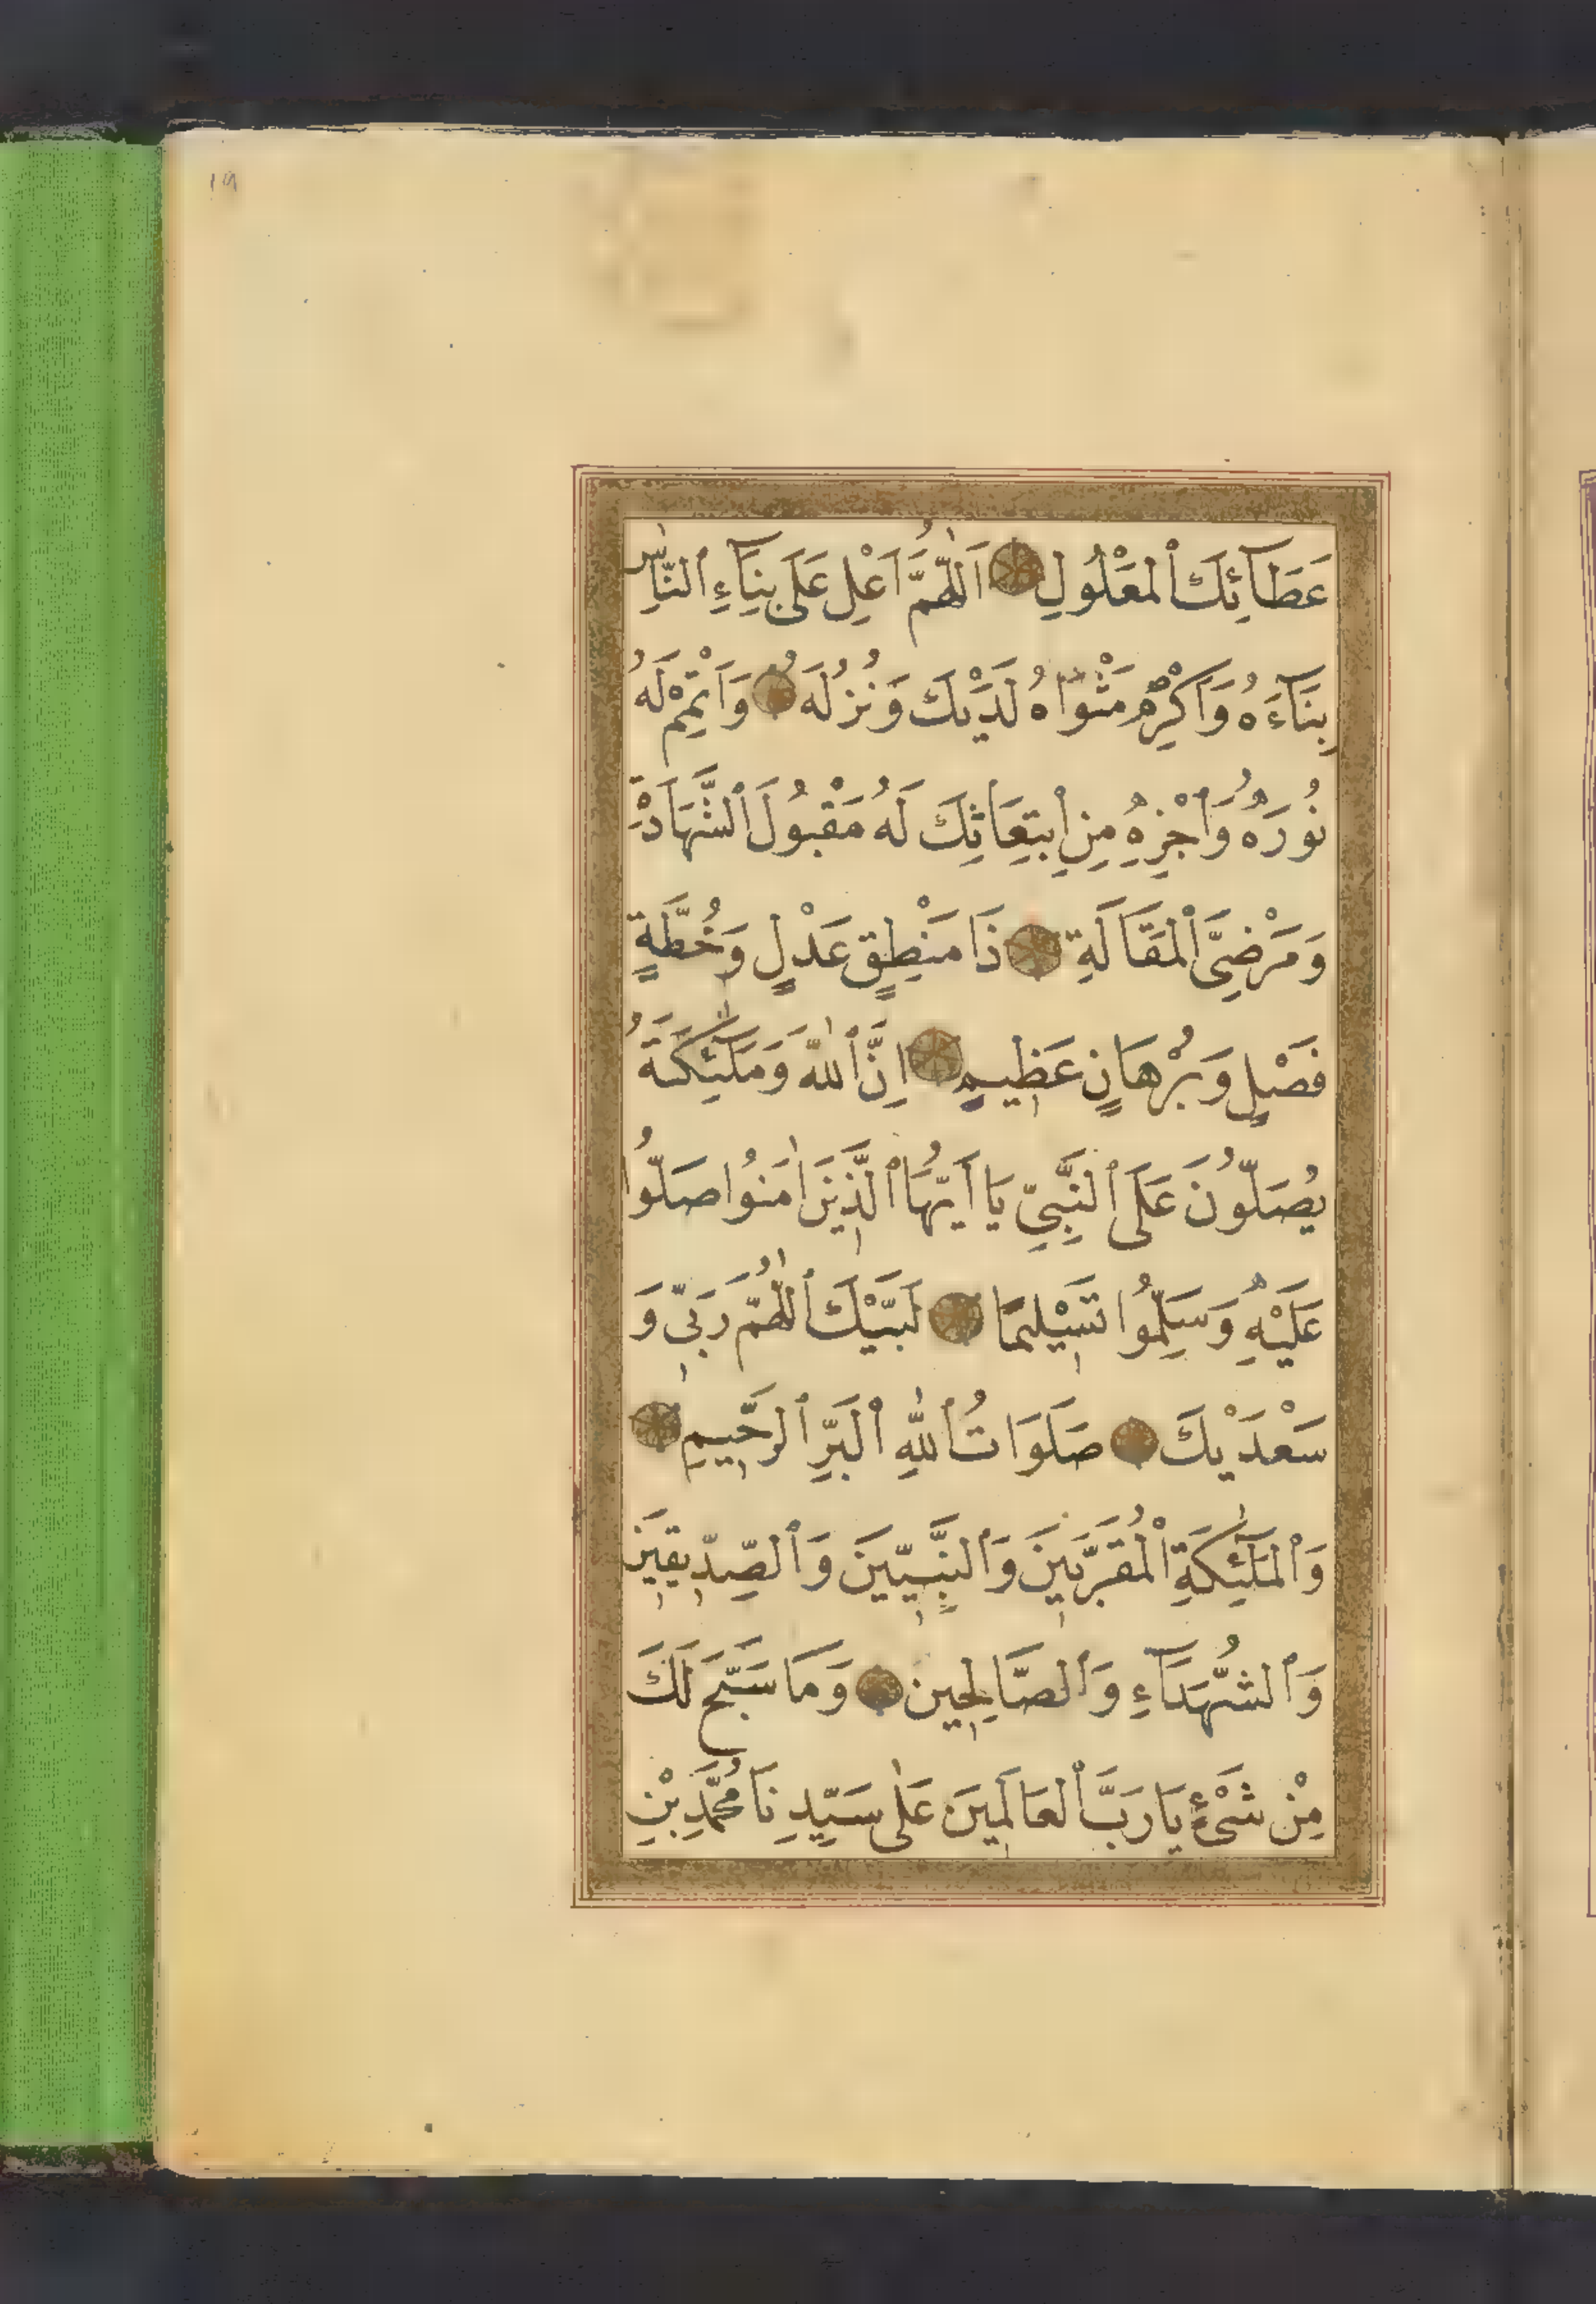 19
عَطَآئِكَ ٱلْمَعْلُولِ اَللّٰهُمَّ اَعْلِ عَلَى بِنَآءِ ٱلنَّاسِ
بِنَآءَهُ وَاَكْرِمْ مَثْوَاهُ لَدَيْكَ وَنُزُلَهُ وَاَتْمِمْ لَهُ
نُورَهُ وَٱجْزِهِ مِنِ ٱبْتِعَاثِكَ لَهُ مَقْبُولَ ٱلشَّهَادَةِ
وَمَرْضِىَّ ٱلْمَقَالَةِ ذَا مَنْطِقٍ عَدْلٍ وَخُطَّةٍ
فَصْلٍ وَبُرْهَانٍ عَظِيمٍ اِنَّ ٱللّٰهَ وَمَلٰٓئِكَتَهُ
يُصَلُّونَ عَلَى ٱلنَّبِيِّ يَا أَيُّهَا ٱلَّذِينَ اٰمَنُوا صَلُّوا
عَلَيْهِ وَسَلِّمُوا تَسْلِيمًا لَبَّيْكَ ٱللّٰهُمَّ رَبِّي وَ
سَعْدَيْكَ صَلَوَاتُ ٱللّٰهِ ٱلْبَرِّ ٱلرَّحِيمِ
وَٱلْمَلٰٓئِكَةِ ٱلْمُقَرَّبِينَ وَٱلنَّبِيِّينَ وَٱلصِّدِّيقِينَ
وَٱلشُّهَدَآءِ وَٱلصَّالِحِينَ وَمَا سَبَّحَ لَكَ
مِنْ شَىْءٍ يَا رَبَّ ٱلْعَالَمِينَ عَلٰى سَيِّدِنَا مُحَمَّدِ بْنِ